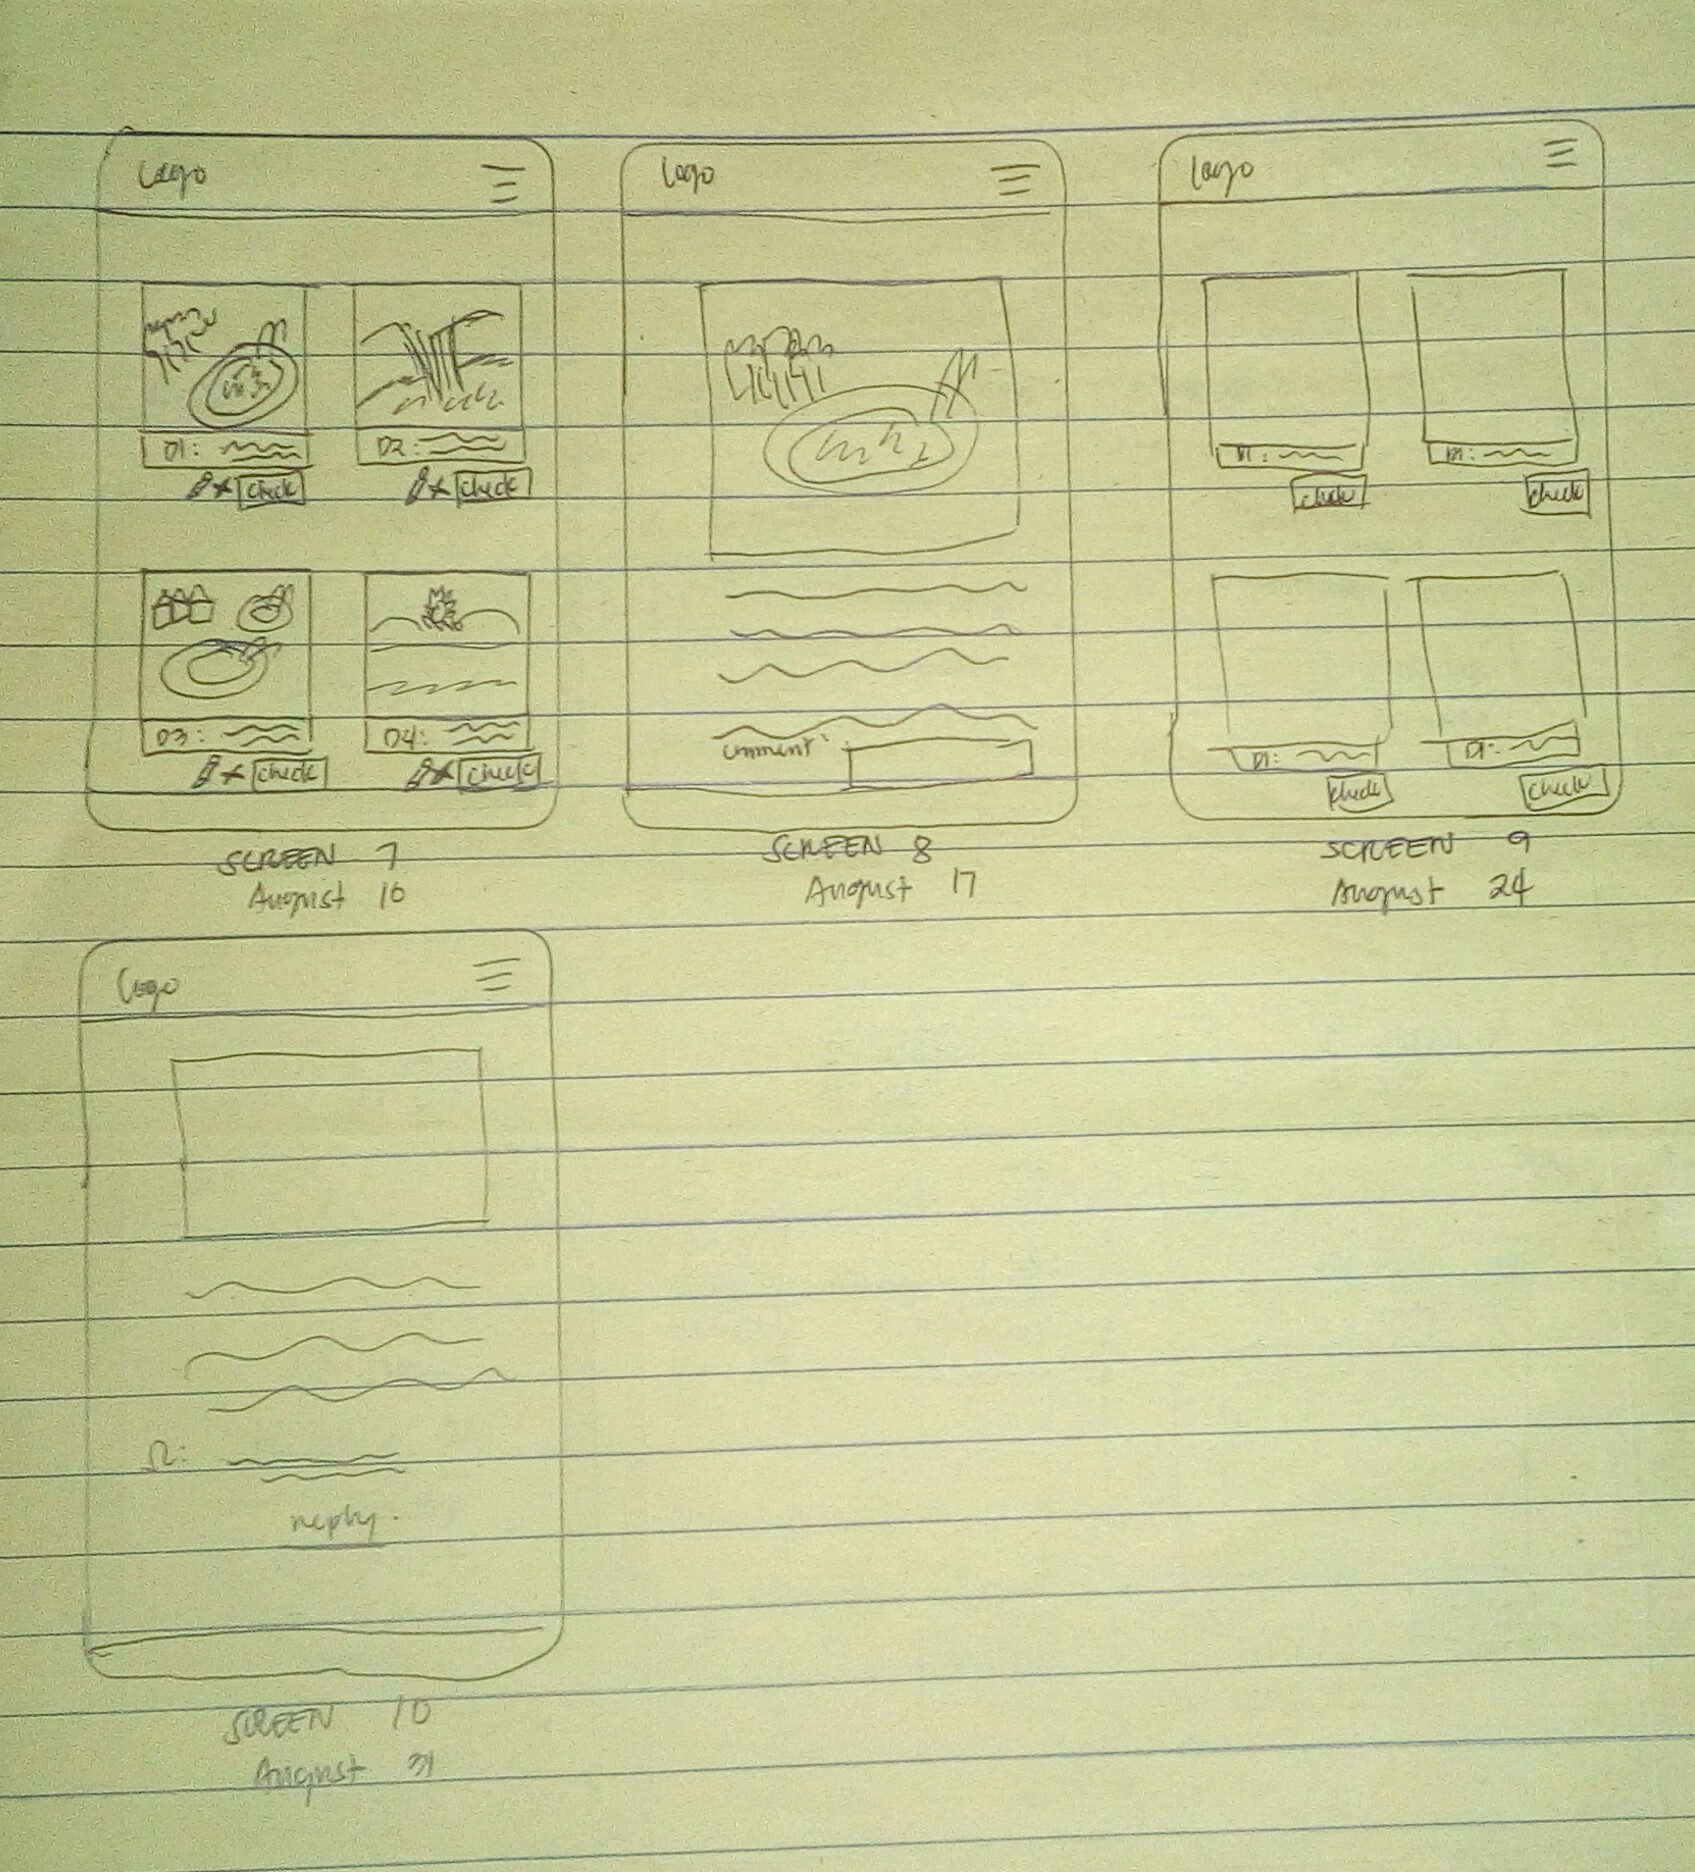 Logo
D1:
D2:
check
check
D3:
D4:
check
check
SCREEN 7
August 10
Logo
comment:
SCREEN 8
August 17
Logo
D1:
D1:
check
check
D1:
D1:
check
check
SCREEN 9
August 24
Logo
reply.
SCREEN 10
August 31